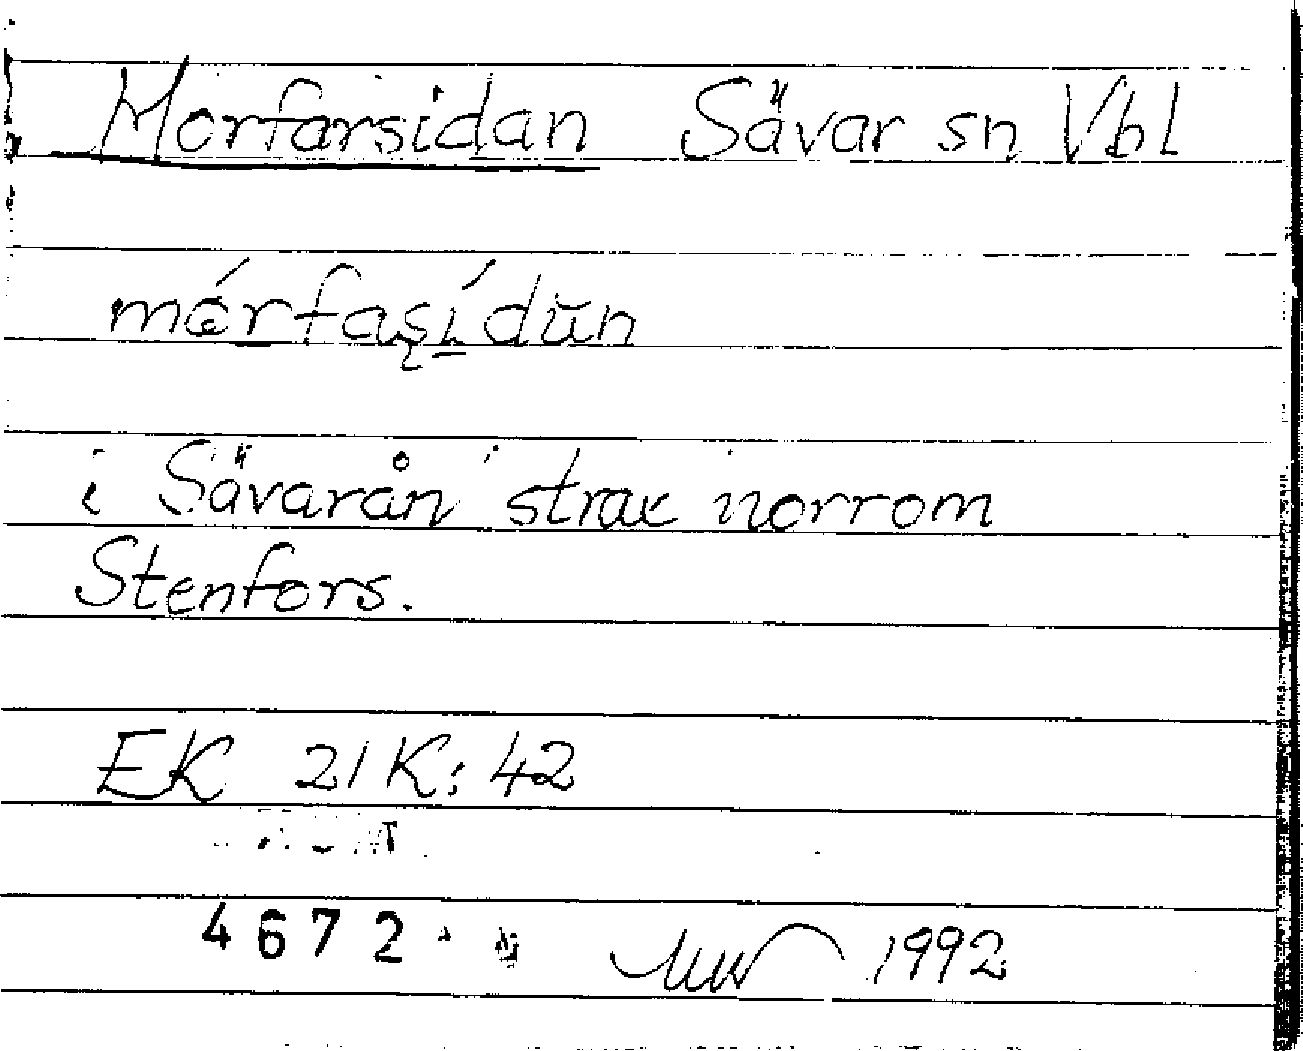 Morfarsidan Sävar sn Vbl
mórfaşídŭn
i Sävarån strax norrom
Stenfors.
EK 21K: 42
4672
1992